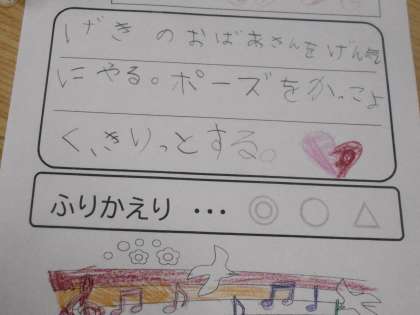 げきのおばあさんをげん気
にやる。ポーズをかっこよ
く、きりっとする。
ふりかえり … ◎ ○ △